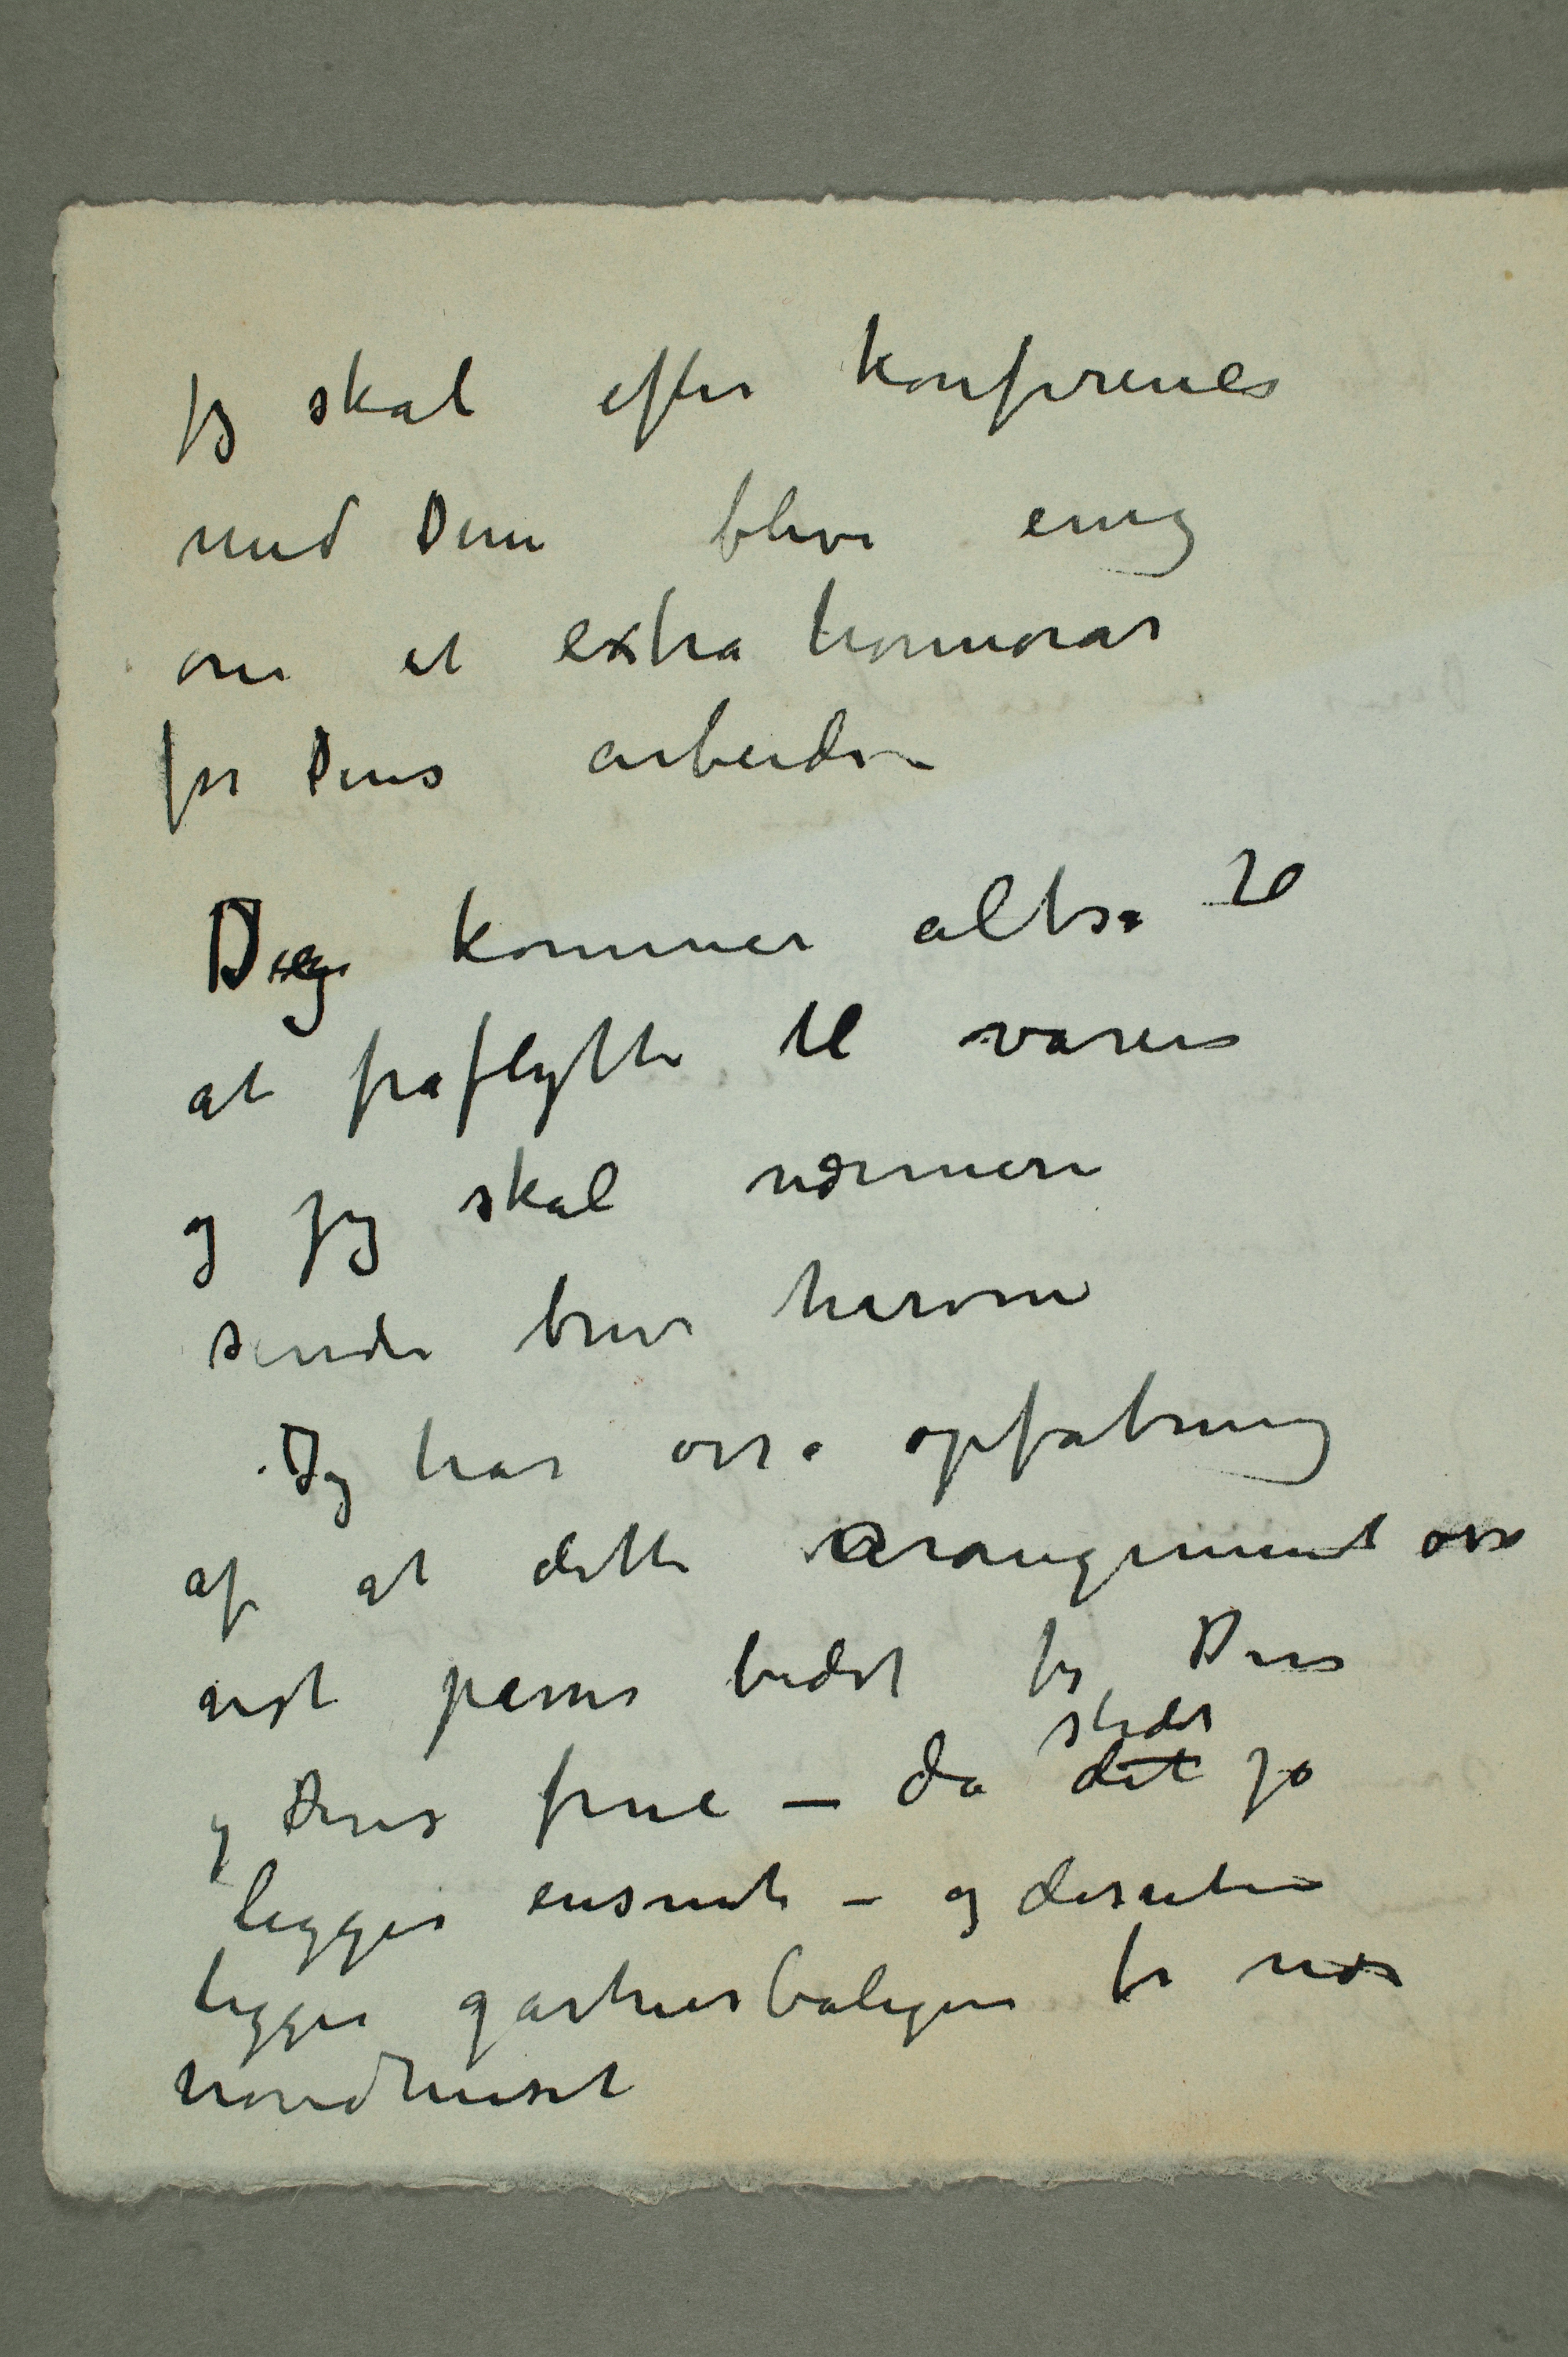 jeg skal efter konferense
med Dem blive enig
om et extra honnorar
for Deres arbeide
De kommer altså til
at fraflytte til våren
og jeg skal nærmere
sende brev herom
Jeg har osså opfatning
af at dette arangement osså
vist passer bedst for Dem
og Deres frue – da det stedet jo
ligger ensomt – og desuten
ligger gartnerboligen for nær
hovedhuset